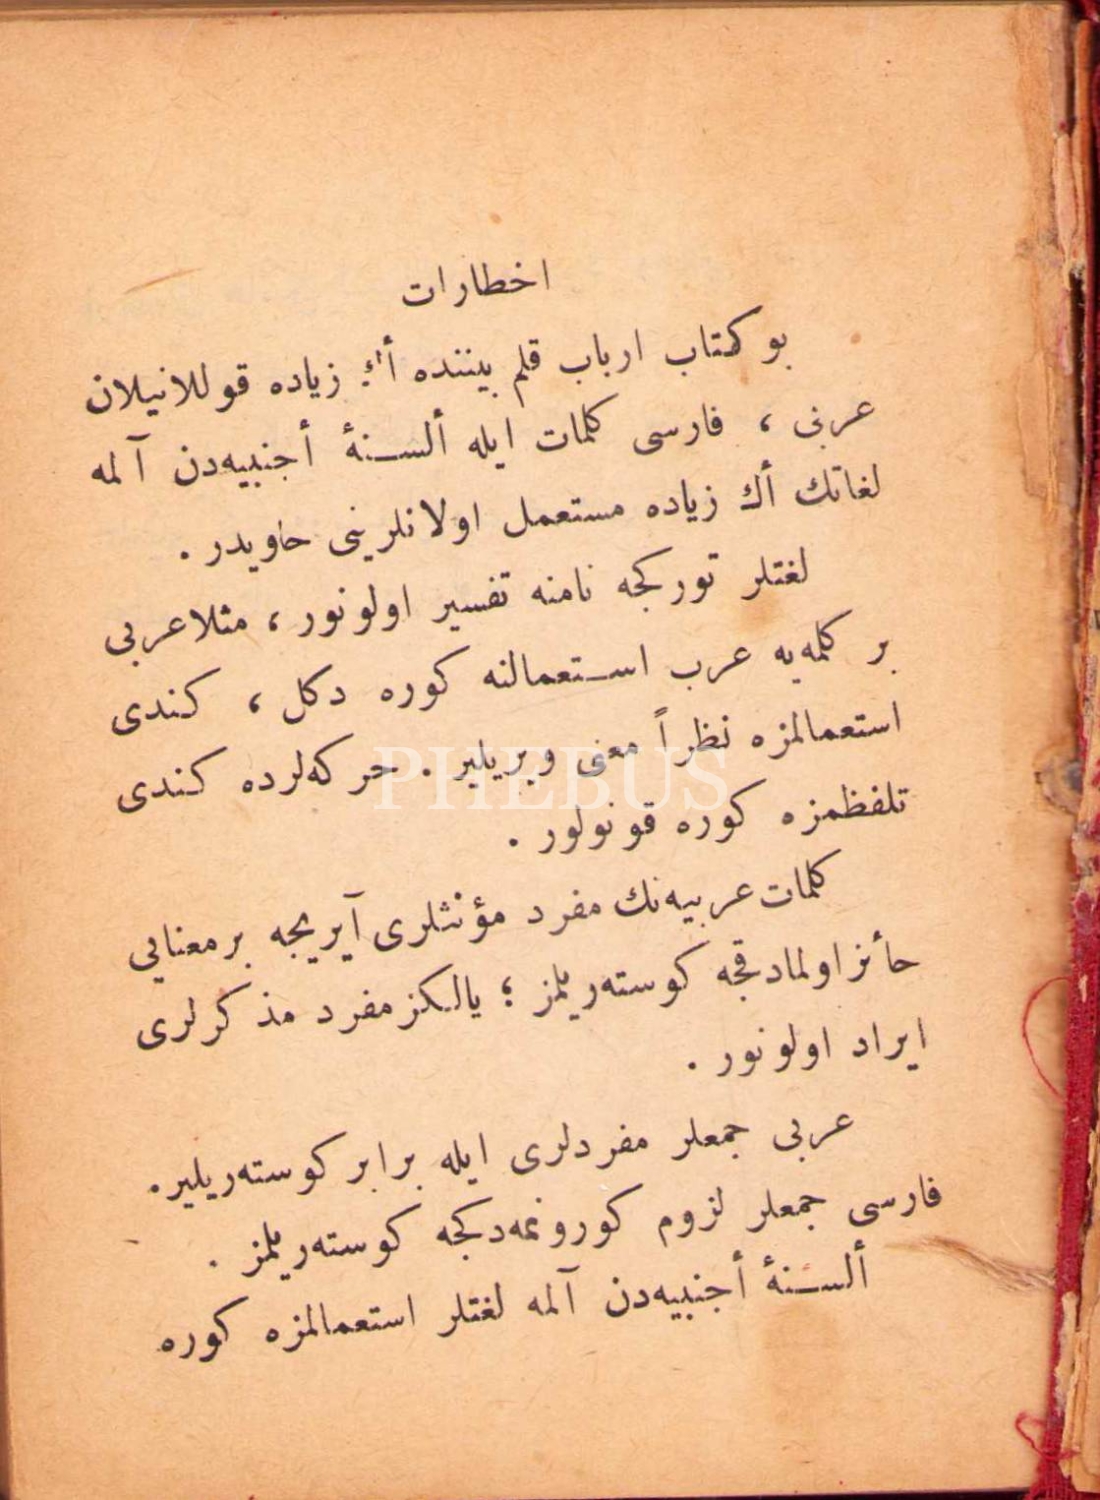 اخطارات
بو كتاب ارباب قلم بيننده أڭ زياده قوللانيلان
عربى ، فارسى كلمات ايله ألسنهٔ أجنبيه‌دن آلمه
لغاتك أك زياده مستعمل اولانلرينى حاويدر .
لغتلر توركجه نامنه تفسير اولونور ، مثلا عربى
بر كلمه‌يه عرب استعمالنه كوره دكل ، كندى
استعمالمزه نظراً معنى ويريلير . حركه‌لرده كندى
تلفظمزه كوره قونولور .
كلمات عربيه‌نك مفرد مؤنثلرى آيريجه بر معنايى
حأئز اولمادقجه كوسته‌ريلمز ؛ يالكز مفرد مذكرلرى
ايراد اولونور .
عربى جمعلر مفردلرى ايله برابر كوسته‌ريلير.
فارسى جمعلر لزوم كورونمه‌دكجه كوسته‌ريلمز .
ألسنهٔ أجنبيه‌دن آلمه لغتلر استعمالمزه كوره
PHEBUS